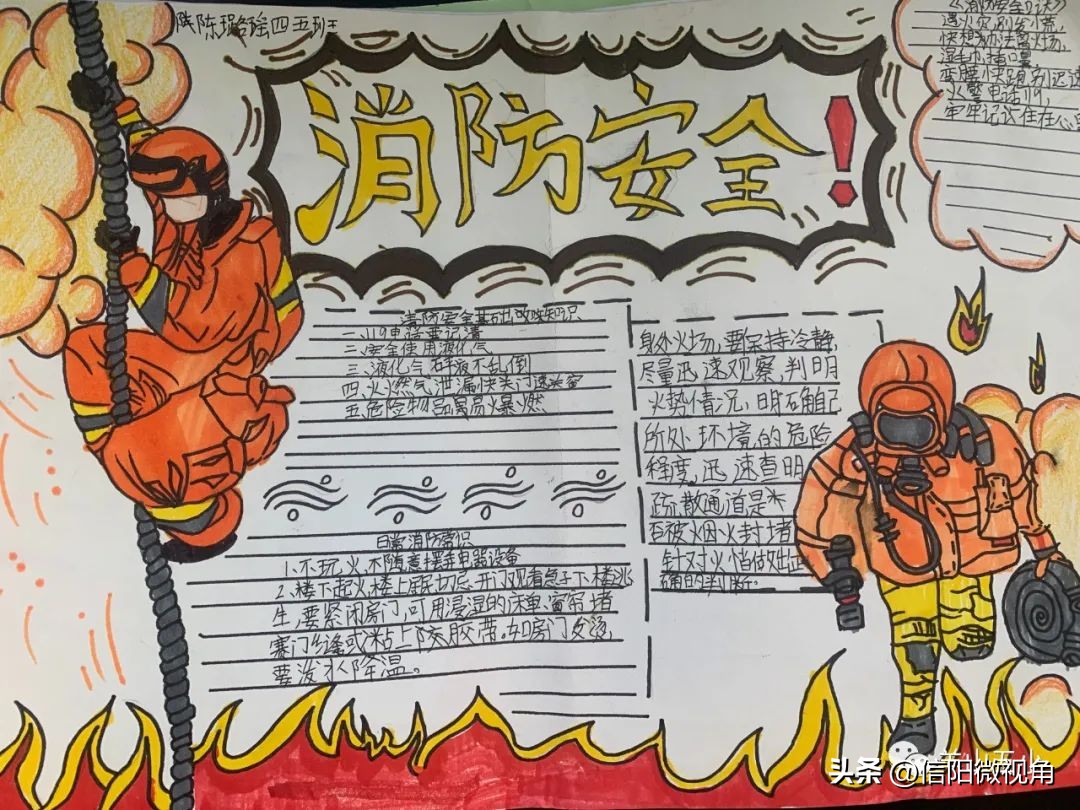 陈陈瑶四五班
消防安全!
遇火灾别发慌,
快想办法离火场,
湿毛巾捂口鼻
弯腰快跑别迟
火警电话119,
牢牢记住在心
消防安全基础知识
一、119电话要记清
二、安全使用液化气
三、液化气残液不乱倒
四、火燃气泄漏快关门
五、危险物品离易爆燃
日常消防常识
1、不玩火、不随意摆弄电器设备
2、楼下起火楼上居切忌开门观看急于下楼逃
生,要紧闭房门,可用浸湿的床单、窗帘堵
塞门缝或粘上胶带。如房门发烫,
要泼水降温。
身处火场,要保持冷静,
尽量迅速观察,判明
火势情况,明确自己
所处环境的危险
程度,迅速查明
疏散通道是
否被烟火封堵
针对火情做出正
确的判断。
头条 @信阳微视角